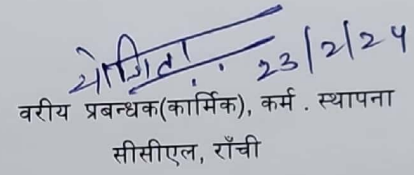 योगिता 23/2/24
वरीय प्रबन्धक(कार्मिक), कर्म . स्थापना
सीसीएल, राँची